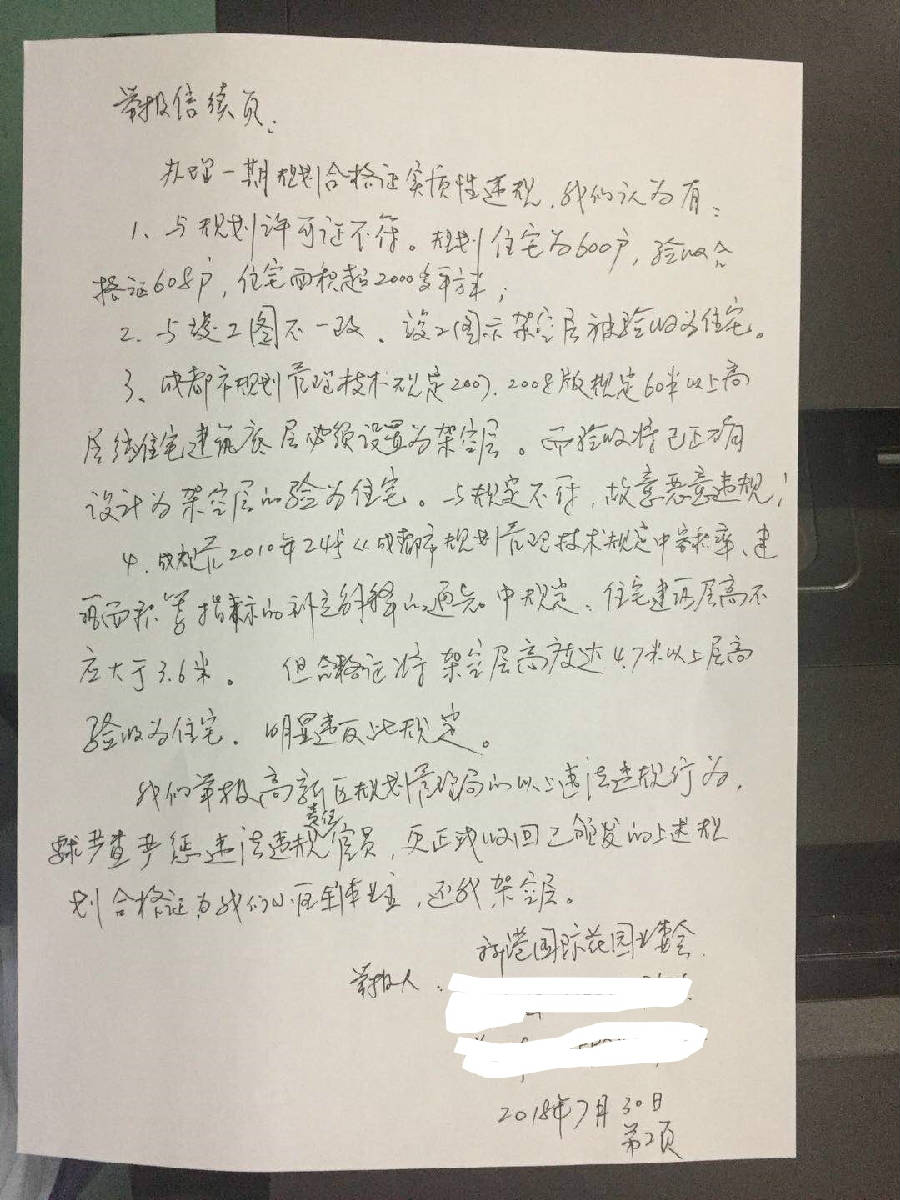 举报信续页:
办理一期规划合格证实质性违规,我们认为有:
1、与规划许可证不符。规划住宅为600户,验收合
格证608户,住宅面积超2000多平方米;
2、与竣工图不一致、竣工图示架空层被验收为住宅。
3、成都市规划管理技术规定2007、2008版规定60米以上高
层住宅建筑底层必须设置为架空层。而验收将已正确
设计为架空层的验为住宅。与规定不符,故意恶意违规;
4、成规管2010年24号《成都市规划管理技术规定中容积率、建
筑面积等指标的补充解释的通知》中规定、住宅建筑层高不
应大于3.6米。 但合格证将架空层高度达4.7米以上层高
验收为住宅、明显违反此规定。
我们举报高新区规划管理局的以上违法违规行为,
要求严查严惩违法违规责任官员,更正或收回已颁发的上述规
划合格证为我们小区全体业主,还我架空层。
新港国际花园业委会
举报人:
2018年7月30日
第2页